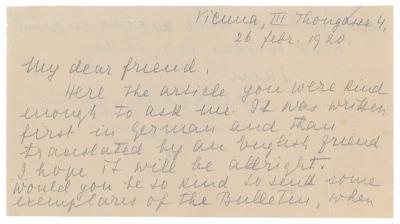 Vienna, III Thongasse 4,
26 febr. 1920
My dear friend,
Here the article you were kind
enough to ask me. It was written
first in German and than
translated by an English friend
I hope it will be allright.
Would you be so kind to send some
exemplares of the Bulletin, when